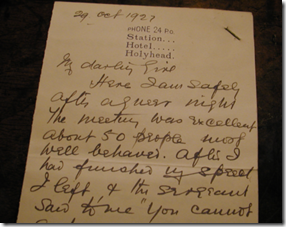 29 Oct 1927
PHONE 24 P.O.
Station...
Hotel.....
Holyhead.
My darling Girl
Here I am safely
after a queer night
The meeting was excellent
about 50 people most
well behaved. After I
had finished my speech
I left & the sergeant
said to me "You cannot